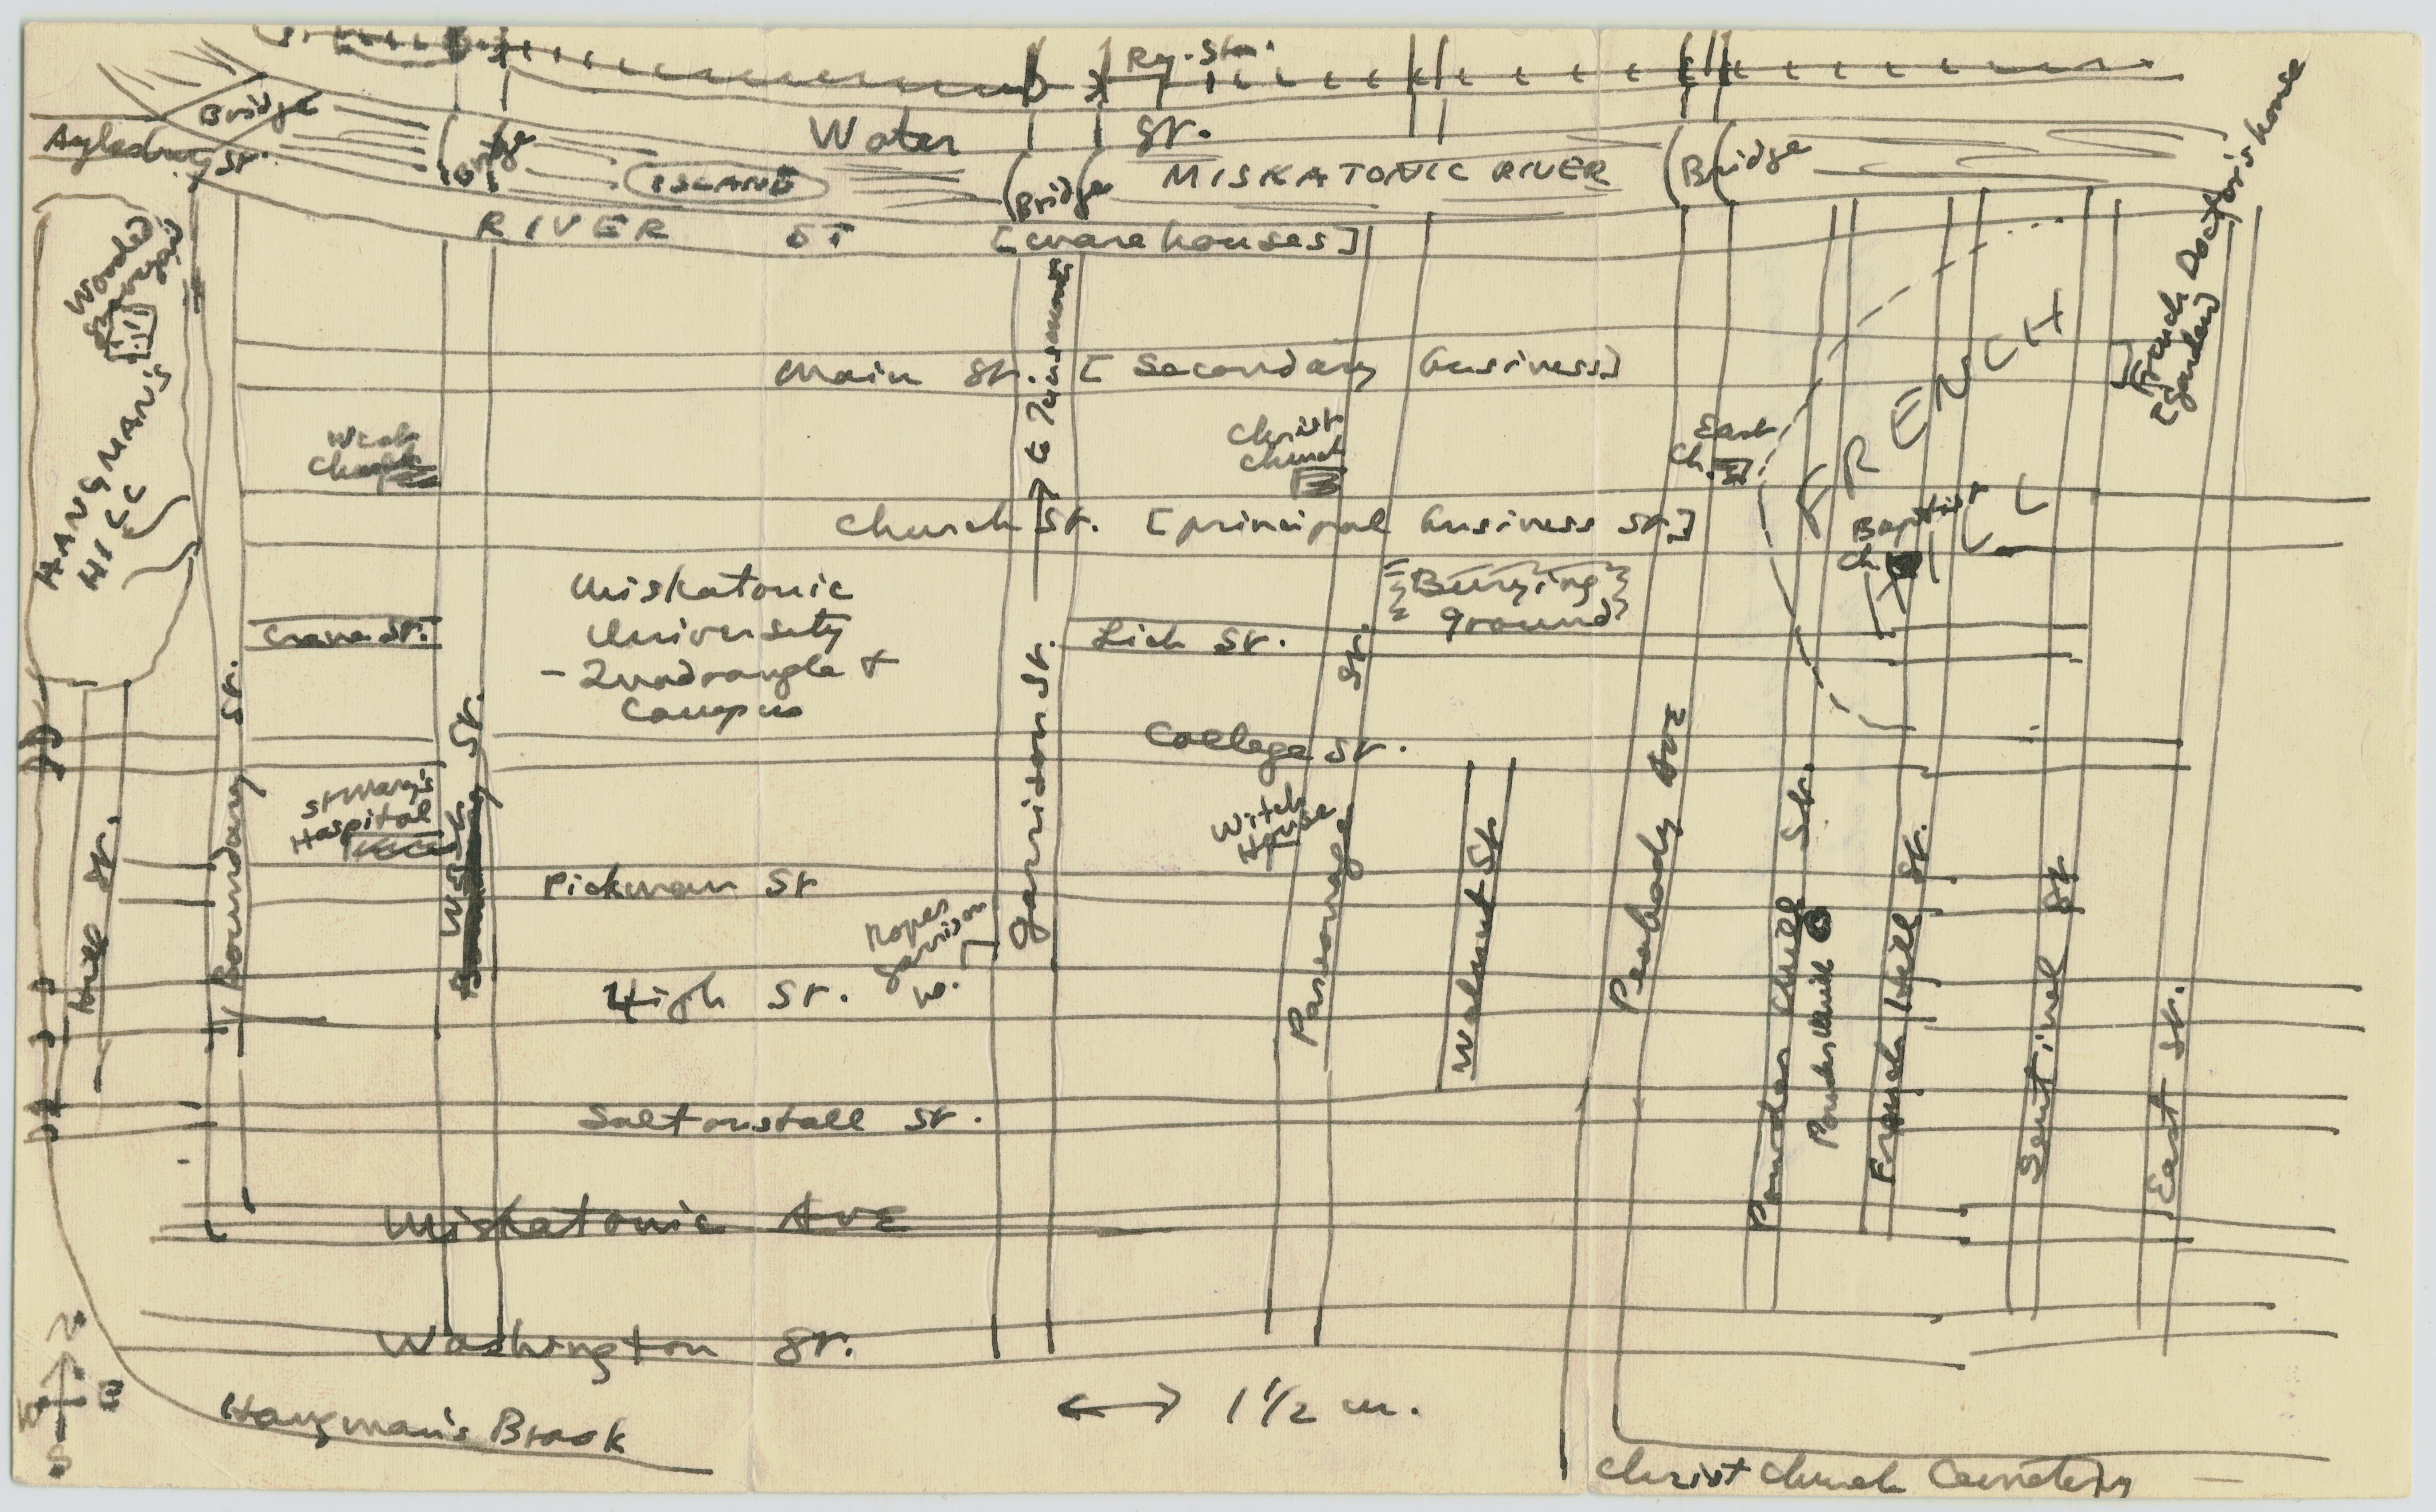 Ry. Sta.
Water St.
Bridge
Aylesbury St.
Bridge
ISLAND
Bridge
MISKATONIC RIVER
Bridge
RIVER ST [warehouses]
Wooded
Graveyard
HANGMAN'S
HILL
Main St. [Secondary business]
→ to Dunsmarsh
French Doctor's house
[garden]
West
Church
Christ
Church
East
Ch.
FRENCH
HILL
Church St. [principal business St.]
Baptist
Ch.
Miskatonic
University
- Quadrangle &
Campus
Burying
ground
Crane St.
Lich St.
College St.
St Mary's
Hospital
Witch
House
Pickman St
Ropes
Garrison
Ho.
High St.
Saltonstall St.
Miskatonic Ave
Washington St.
Hill St.
Boundary St.
West St.
Garrison St.
Parsonage St.
Walnut St
Peabody Ave
Powder Mill St.
Powder Mill
French Hill St.
Sentinel St
East St.
N
W E
S
Hangman's Brook
1 1/2 m.
Christ Church Cemetery